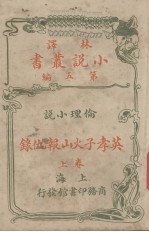 林譯
小說叢書
第五編
倫理小說
英孝子火山報仇錄
卷上
上海
商務印書館發行